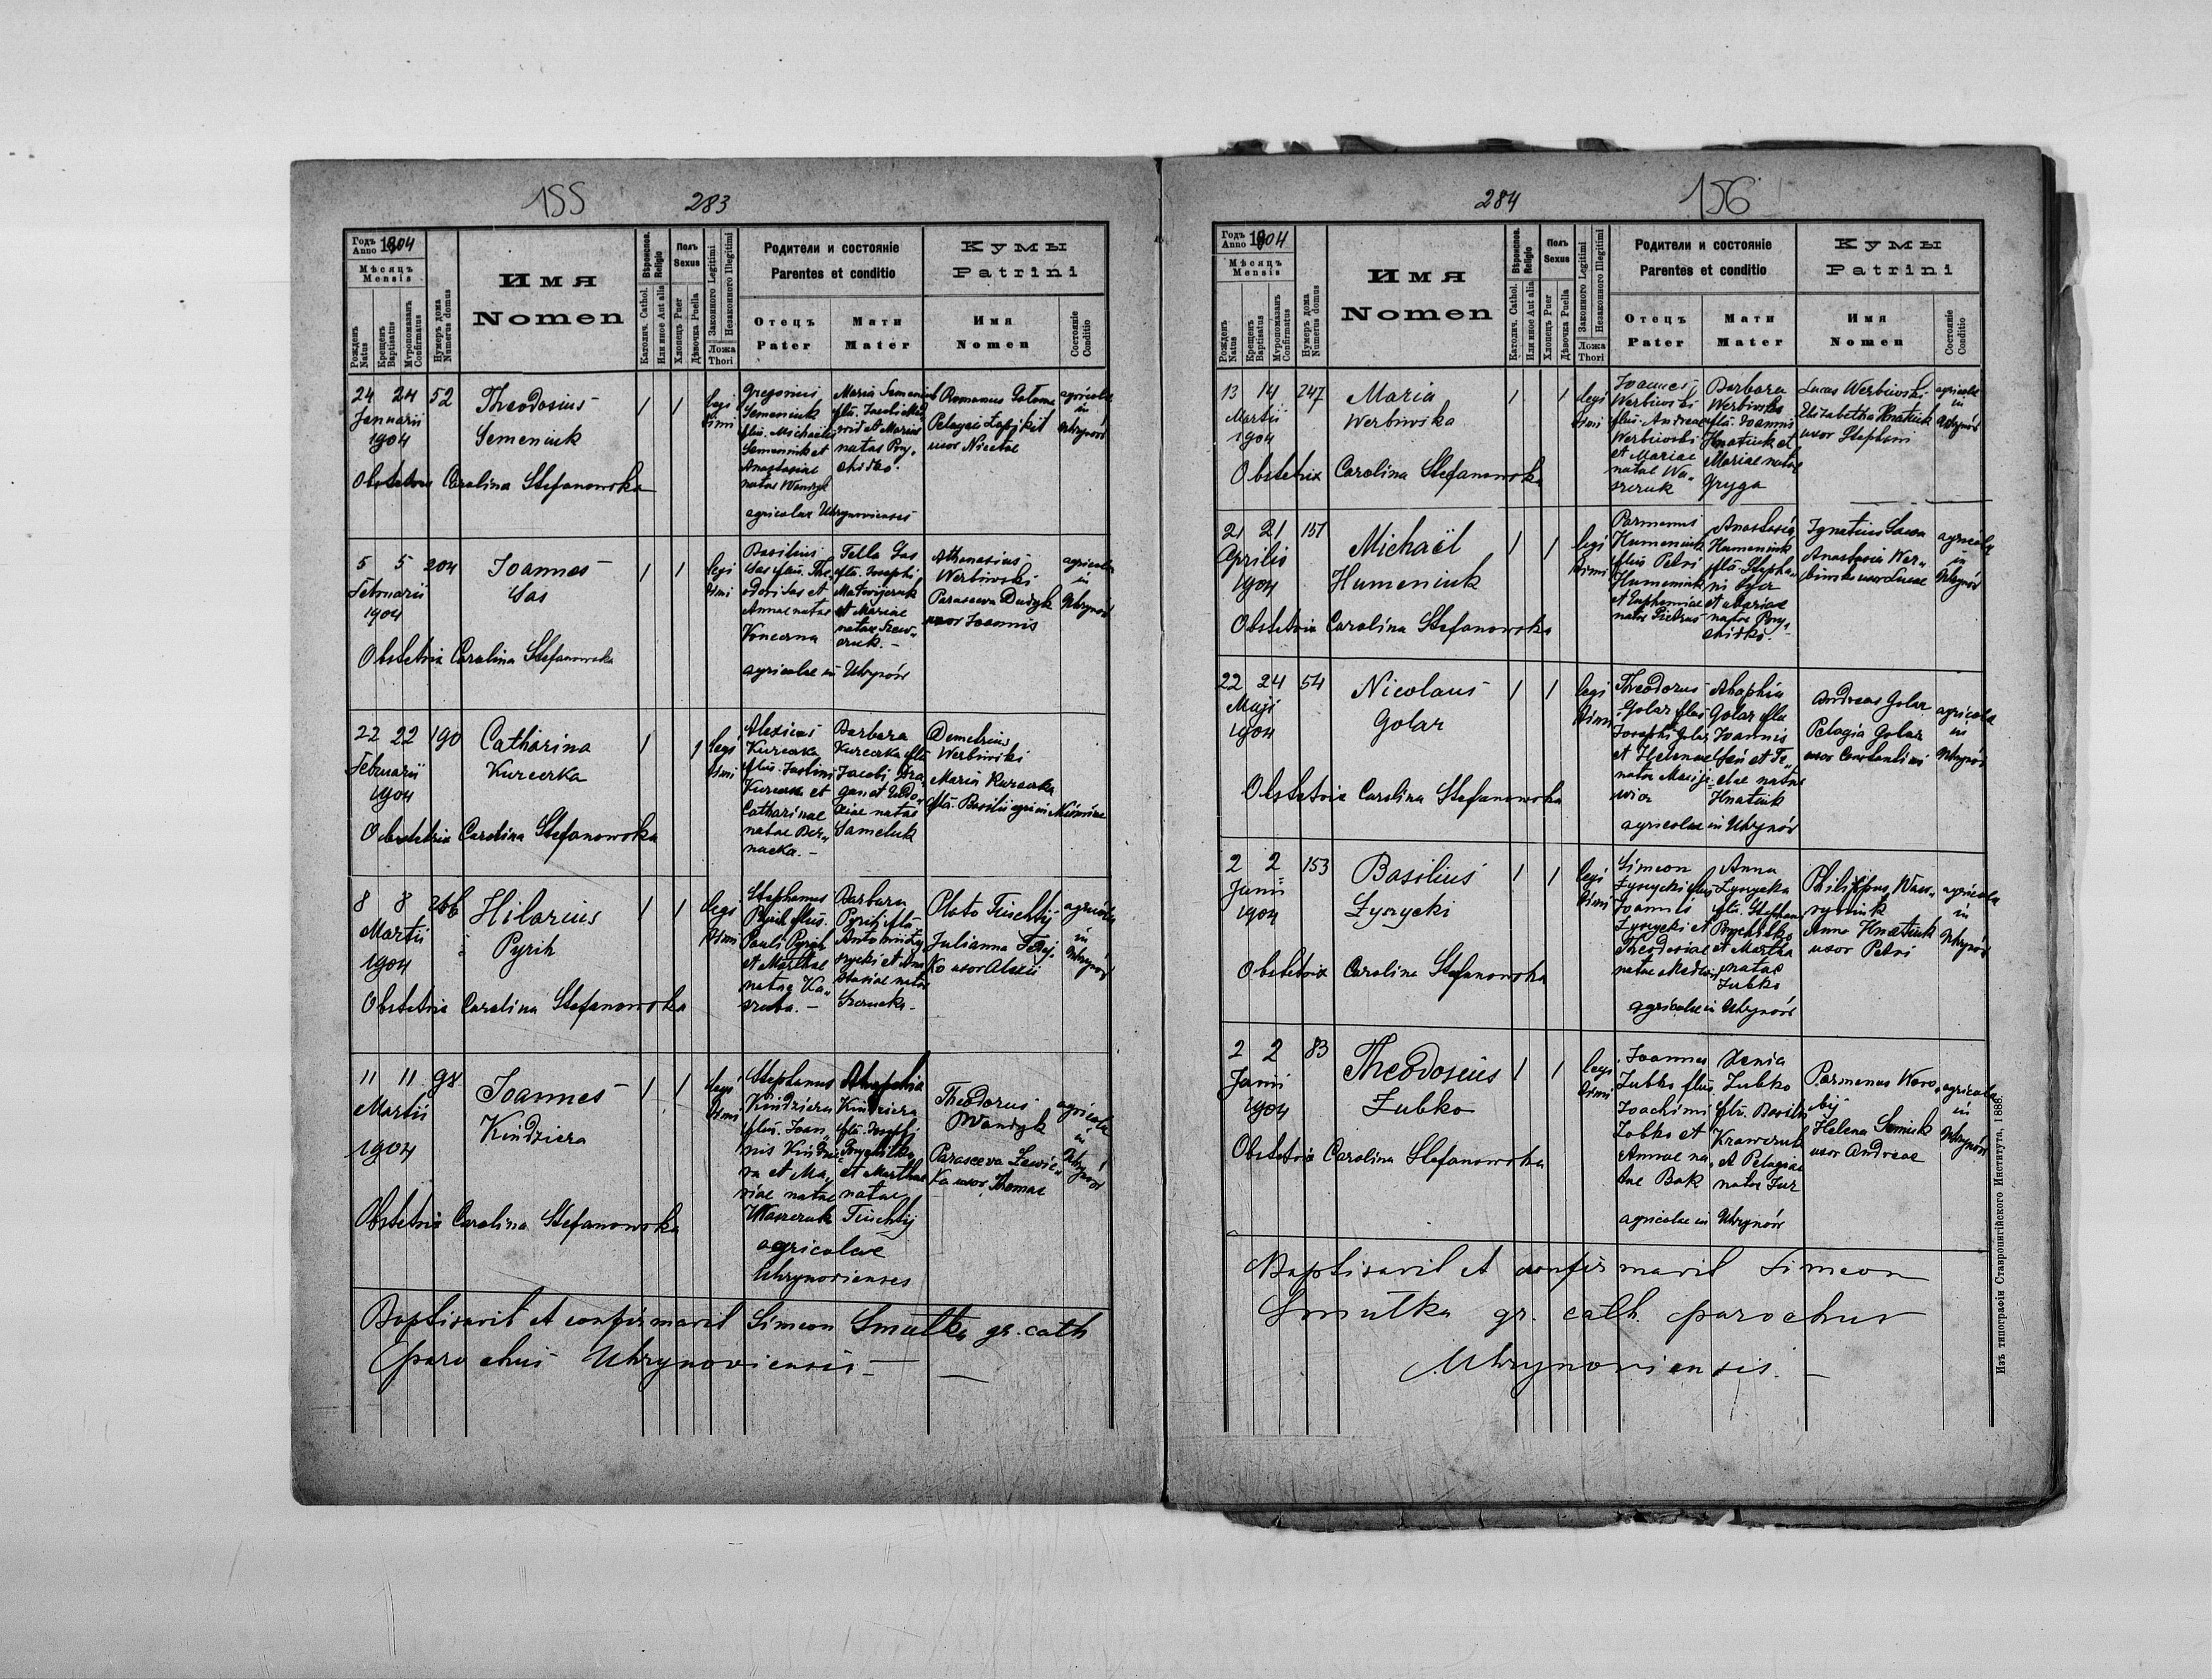 155 283
Годъ 1904
Anno
Мѣсяцъ
Mensis
Рожденъ
Natus
Крещенъ
Baptisatus
Мѵропомазанъ
Confirmatus
Нумеръ дома
Numerus domus
Имя
Nomen
Вѣроиспов.
Religio
Католич. Cathol.
Или иное Aut alia
Полъ
Sexus
Хлопецъ Puer
Дѣвочка Puella
Законного Legitimi
Незаконного Illegitimi
Ложа
Thori
Родители и состояніе
Parentes et conditio
Отецъ
Pater
Мати
Mater
Кумы
Patrini
Имя
Nomen
Состояніе
Conditio
24 24 52
Januarii
1904
Theodosius
Semeniuk
1 1
legi
timi
Gregorius
Semeniuk
filius Michaelis
Semeniuk et
Anastasiae
natae Wandyk
Maria Semeniuk
natae
agricolae Uhrynovienses
Romanus
Pelagia
uxor Nicetae
agricolae
in
Uhrynów
Obstetrix Carolina Stefanowska
5 5 204
Februarii
1904
Joannes
Sas
1 1
legi
timi
Basilius
Sas filius The
odori Sas et
Annae natae
Tekla Sas
filia Josephi
et Mariae
natae
agricolae in Uhrynów
Athanasius
Werbiwski
Parasceva Dudyk
uxor Joannis
agricolae
in
Uhrynów
Obstetrix Carolina Stefanowska
22 22 190
Februarii
1904
Catharina
Kurczka
1 1
legi
timi
Alexius
Kurczka
et
Catharinae
natae Ber„
nacka. –
Barbara
Kurczka filia
Jacobi
natae
Demetrius
Werbiwski
Maria Kurczka
Obstetrix Carolina Stefanowska
8 8
Martii
1904
Hilarius
Pyrih
1 1
legi
timi
Stephanus
Pyrih filius
Pauli Pyrih
et Marthae
natae
Barbara
Pyrih filia
Plato Tuschtij
Julianna
uxor Alexii
agricolae
in
Uhrynów
Obstetrix Carolina Stefanowska
11 11 98
Martii
1904
Joannes
Kindziera
1 1
legi
timi
Stephanus
Kindziera
filius Joan
nis Kindzie
ra et Ma„
riae natae
Waszczuk
Ahaphia
Kindziera
filia Josephi
Prychitko
et Marthae
natae
Tuschtij
agricolae
Uhrynovienses
Theodorus
Wandyk
Parasceva Lewic„
ka uxor Thomae
agricolae
in
Uhrynów
Obstetrix Carolina Stefanowska
Baptisavit et confirmavit Simeon Smulka gr. cath
parochus Uhrynoviensis –
284 156
Годъ 1904
Anno
Мѣсяцъ
Mensis
Рожденъ
Natus
Крещенъ
Baptisatus
Мѵропомазанъ
Confirmatus
Нумеръ дома
Numerus domus
Имя
Nomen
Вѣроиспов.
Religio
Католич. Cathol.
Или иное Aut alia
Полъ
Sexus
Хлопецъ Puer
Дѣвочка Puella
Законного Legitimi
Незаконного Illegitimi
Ложа
Thori
Родители и состояніе
Parentes et conditio
Отецъ
Pater
Мати
Mater
Кумы
Patrini
Имя
Nomen
Состояніе
Conditio
13 14 247
Martii
1904
Maria
Werbiwska
1 1
legi
timi
Joannes
Werbiwski
filius Andreae
Werbiwski
et Mariae
natae Wa„
szczuk
Barbara
Werbiwska
filia Joannis
Hnatiuk et
Mariae natae
Gryga
Lucas Werbiwski
Elizabetha Hnatiuk
uxor Stephani
agricolae
in
Uhrynów
Obstetrix Carolina Stefanowska
21 21 151
Aprilis
1904
Michaël
Humeniuk
1 1
legi
timi
Parmenus
Humeniuk
filius Petri
Humeniuk
et Euphemiae
natae Pietrus
Anastasia
Humeniuk
filia Stepha
ni
et Mariae
natae Pry„
chidko. –
Ignatius Sawa
Anastasia Wer„
biwska uxor Lucae
agricolae
in
Uhrynów
Obstetrix Carolina Stefanowska
22 24 54
Maji
1904
Nicolaus
Golar
1 1
legi
timi
Theodorus
Golar filius
Josephi Golar
et Helenae
natae
Ahaphia
Golar filia
Joannis
natae
Hnatiuk
agricolae in Uhrynów
Andreas Golar
Pelagia Golar
uxor Constantini
agricolae
in
Uhrynów
Obstetrix Carolina Stefanowska
2 2 153
Junii
1904
Basilius
Łysycki
1 1
legi
timi
Simeon
Łysycki filius
Joannis
Łysycki et
Theodosiae
natae
Anna
Łysycka
filia Stephani
Prychitko
et Martha
natae
Zubko
agricolae in Uhrynów
Philippus
Anna Hnatiuk
uxor Petri
agricolae
in
Uhrynów
Obstetrix Carolina Stefanowska
2 2 83
Junii
1904
Theodosius
Zubko
1 1
legi
timi
Joannes
Zubko filius
Joachimi
Zubko et
Annae na„
tae Bak
Xenia
Zubko
filia Basilii
Krawczuk
et Pelagiae
natae Jur
agricolae in Uhrynów
Parmenus Woro„
bij
Helena Semiuk
uxor Andreae
agricolae
in
Uhrynów
Obstetrix Carolina Stefanowska
Baptisavit et confirmavit Simeon
Smulka gr. cath. parochus
Uhrynoviensis. –
Изъ типографіи Ставропигійского Института, 1888.